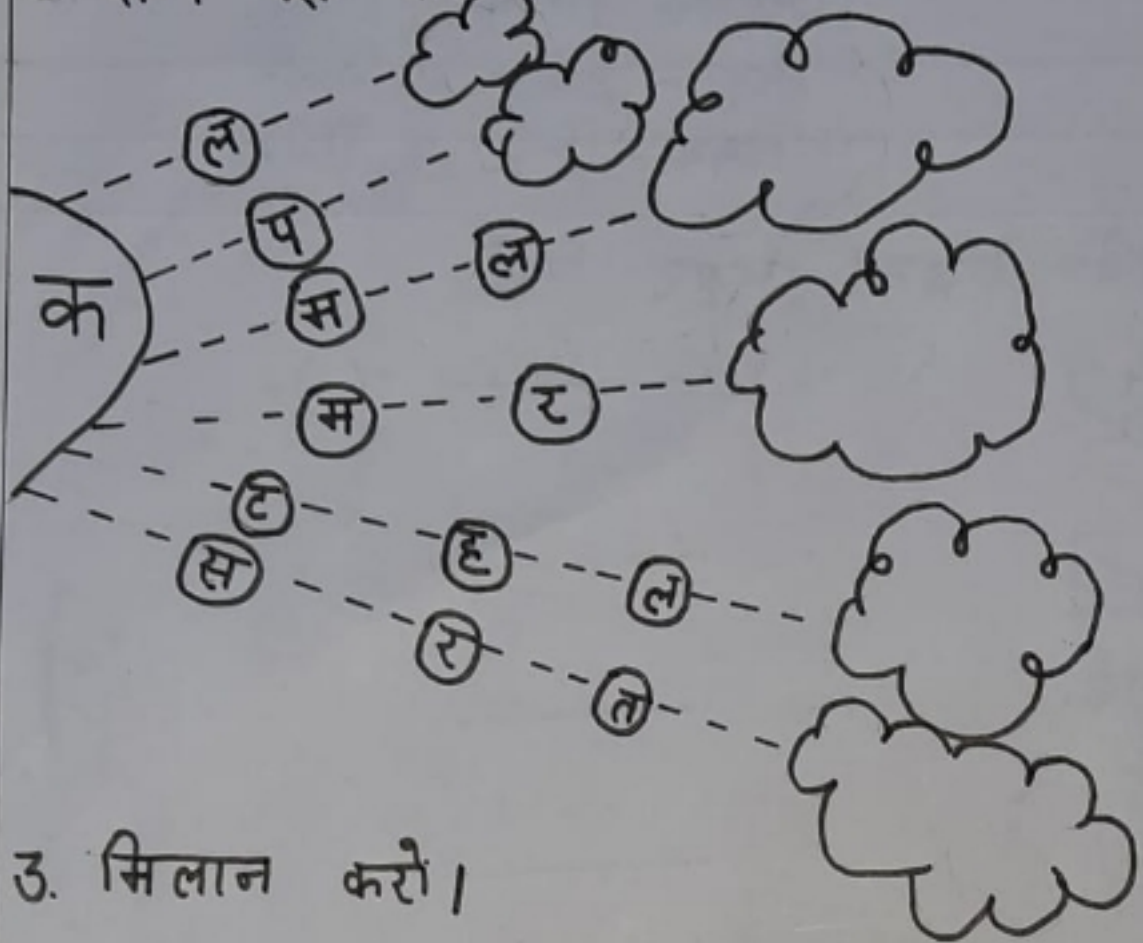 ल
प
क
म ल
म र
ट ह ल
स र त
3. मिलान करो।